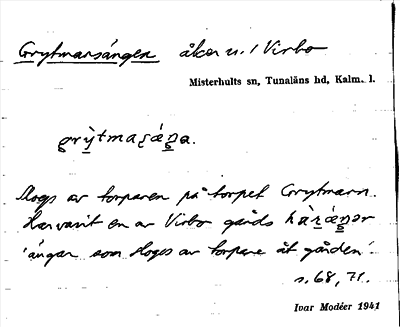 Grytmarsängen åker u. / Virbo
Misterhults sn, Tunaläns hd, Kalm. l.
grỳtmaṣáṉa.
Slogs av torparen på torpet Grytmarn.
Har varit en av Virbo gårds hàṟáṉər
'ängar som sloges av torpare åt gården'.
s. 68, 71.
Ivar Modéer 1941